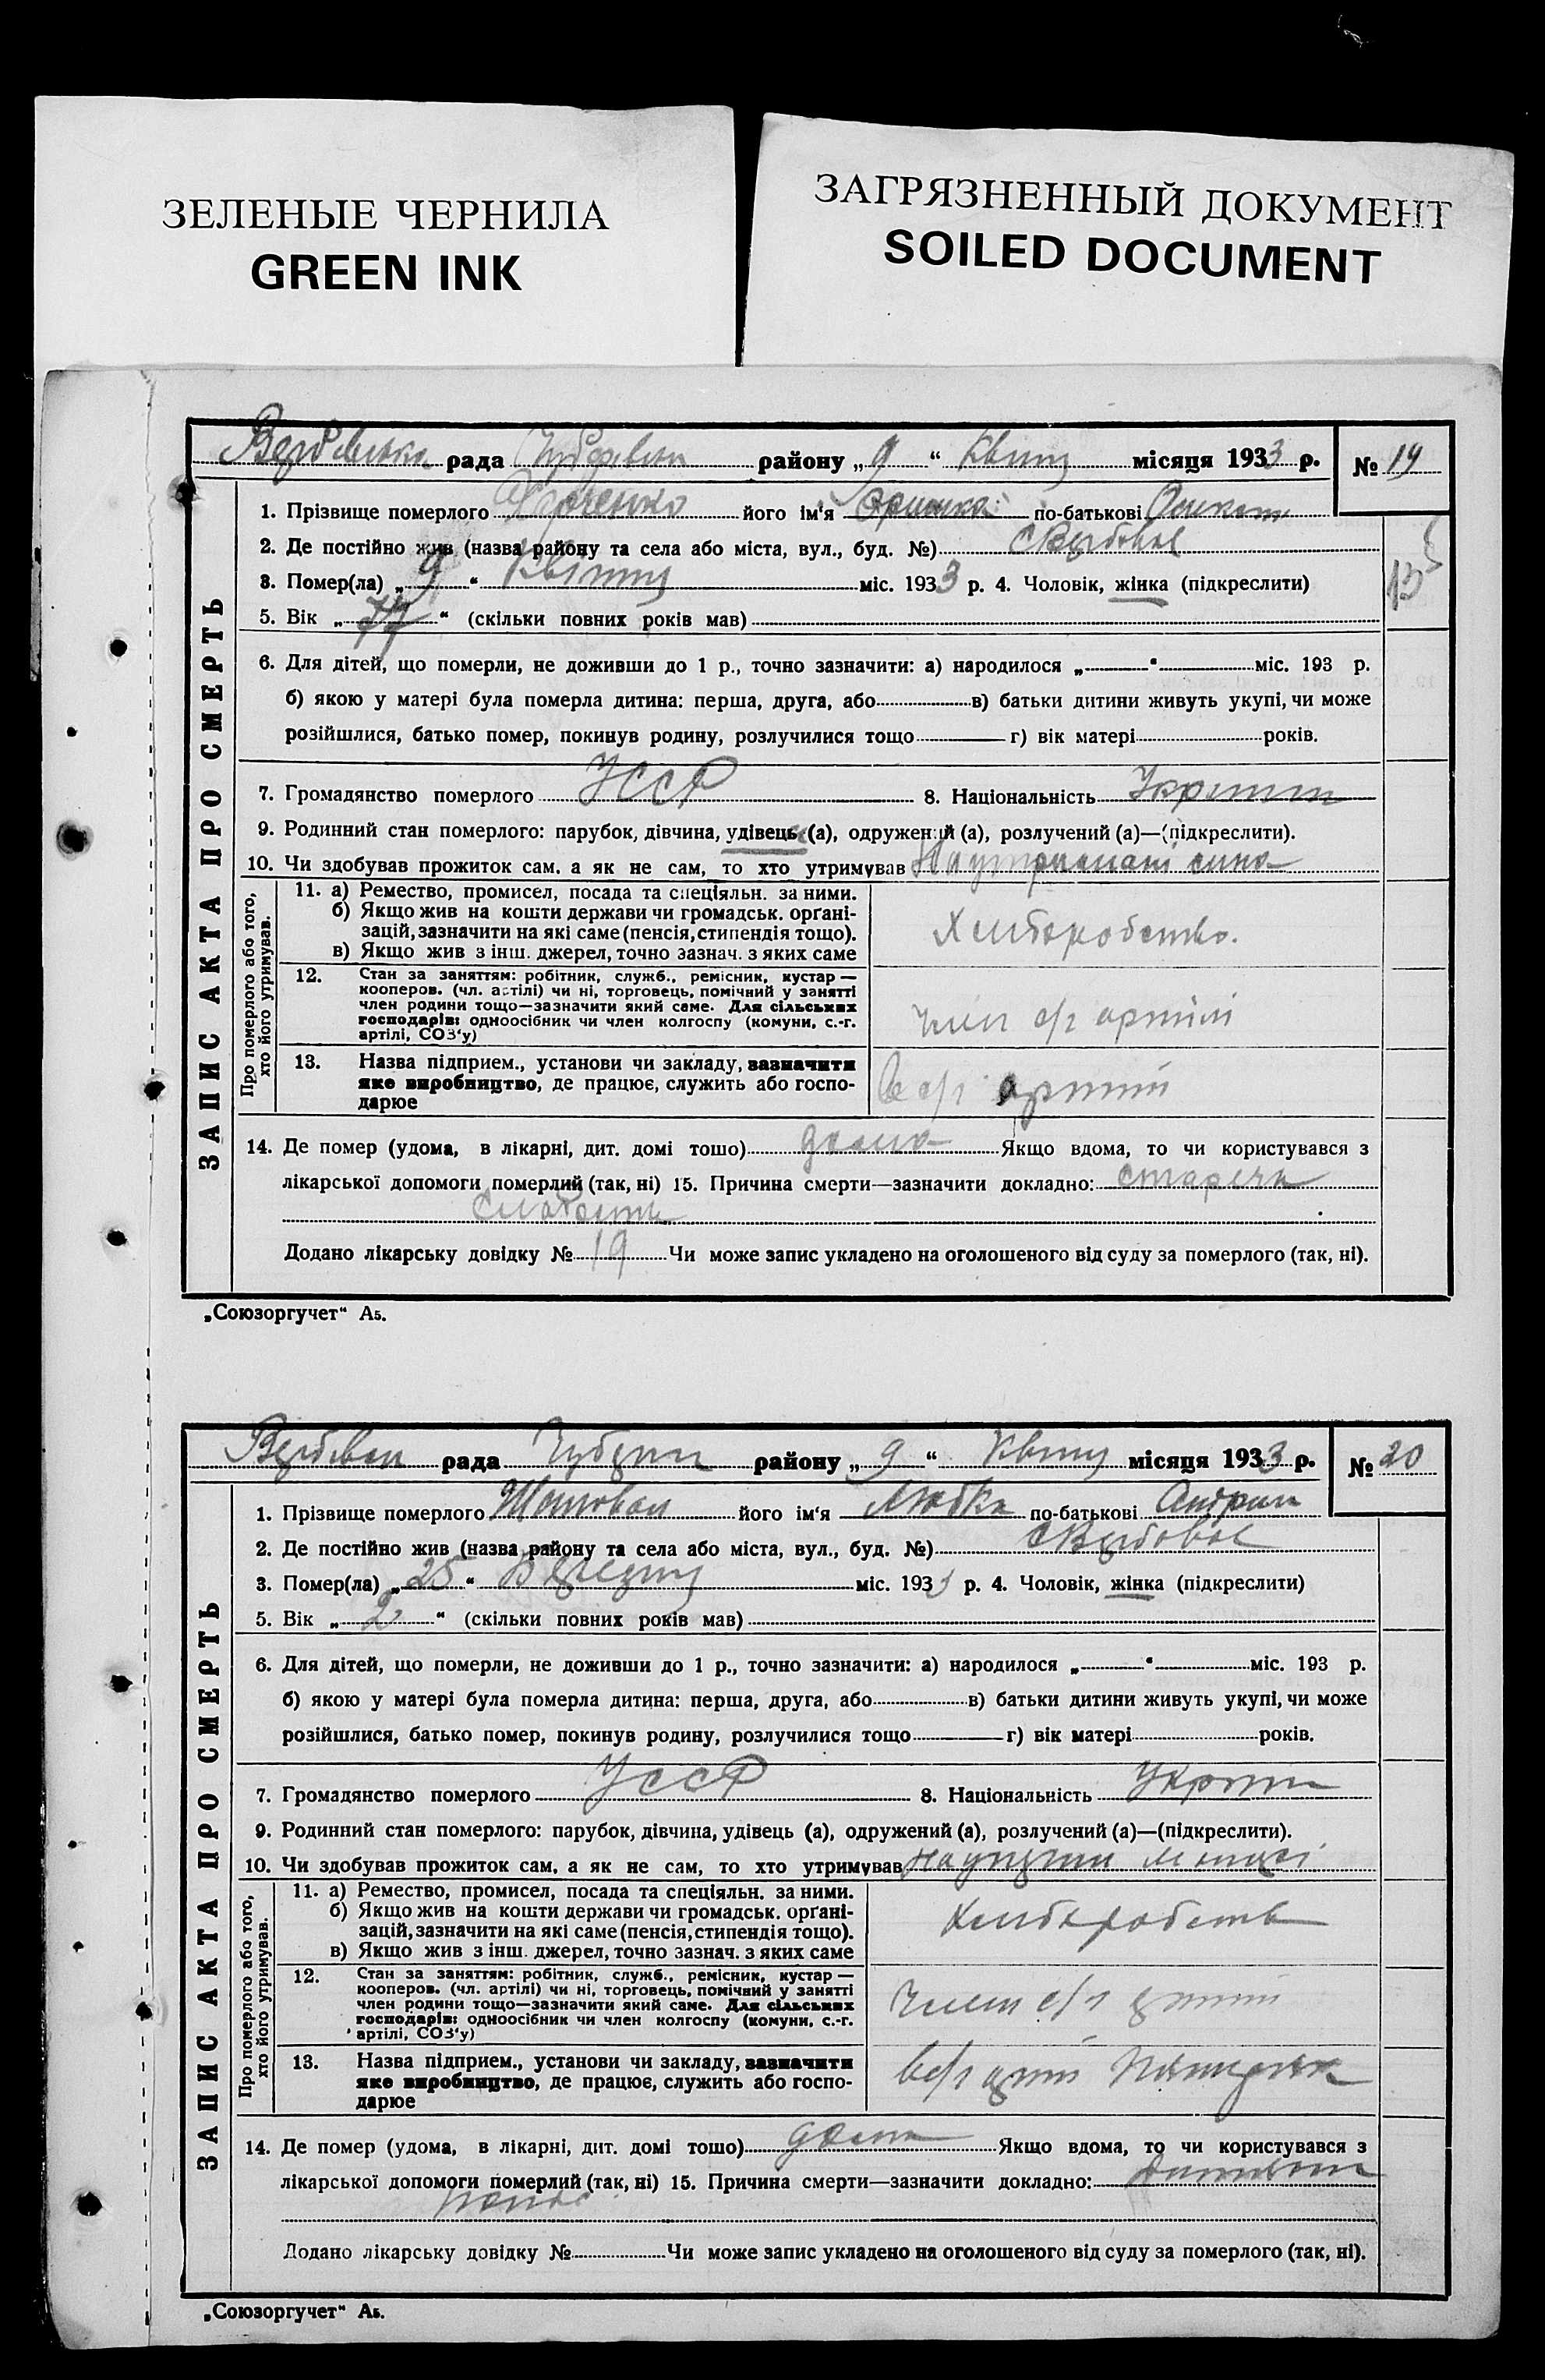 ЗЕЛЕНЫЕ ЧЕРНИЛА
GREEN INK
ЗАГРЯЗНЕННЫЙ ДОКУМЕНТ
SOILED DOCUMENT
рада району „ 9 “ Квітня місяця 1933 р. № 19
ЗАПИС АКТА ПРО СМЕРТЬ
1. Прізвище померлого його ім'я по-батькові
2. Де постійно жив (назва району та села або міста, вул., буд. №)
3. Помер(ла) „ 9 “ Квітня міс. 1933 р. 4. Чоловік, жінка (підкреслити)
5. Вік „ 77 “ (скільки повних років мав)
6. Для дітей, що померли, не доживши до 1 р., точно зазначити: а) народилося „ “ міс. 193 р.
б) якою у матері була померла дитина: перша, друга, або в) батьки дитини живуть укупі, чи може
розійшлися, батько помер, покинув родину, розлучилися тощо г) вік матері років.
7. Громадянство померлого УССР 8. Національність
9. Родинний стан померлого: парубок, дівчина, удівець (а), одружений (а), розлучений (а)—(підкреслити).
10. Чи здобував прожиток сам, а як не сам, то хто утримував сина
Про померлого або того,
хто його утримував.
11. а) Ремество, промисел, посада та спеціяльн. за ними.
б) Якщо жив на кошти держави чи громадськ. орґані-
зацій, зазначити на які саме (пенсія, стипендія тощо).
в) Якщо жив з інш. джерел, точно зазнач. з яких саме
Хліборобство.
12. Стан за заняттям: робітник, служб., ремісник, кустар —
кооперов. (чл. артілі) чи ні, торговець, помічний у занятті
член родини тощо—зазначити який саме. Для сільських
господарів: одноосібник чи член колгоспу (комуни, с.-г.
артілі, СОЗ'у)
член с/г артілі
13. Назва підприєм., установи чи закладу, зазначити
яке виробництво, де працює, служить або госпо-
дарює
в с/г артілі
14. Де помер (удома, в лікарні, дит. домі тощо) дома Якщо вдома, то чи користувався з
лікарської допомоги померлий (так, ні) 15. Причина смерти—зазначити докладно: стареча
слабость
Додано лікарську довідку № 19 Чи може запис укладено на оголошеного від суду за померлого (так, ні).
„Союзоргучет“ А5.
рада району „ 9 “ Квітня місяця 1933 р. № 20
ЗАПИС АКТА ПРО СМЕРТЬ
1. Прізвище померлого його ім'я Любка по-батькові
2. Де постійно жив (назва району та села або міста, вул., буд. №)
3. Помер(ла) „ 25 “ Березня міс. 1933 р. 4. Чоловік, жінка (підкреслити)
5. Вік „ 2 “ (скільки повних років мав)
6. Для дітей, що померли, не доживши до 1 р., точно зазначити: а) народилося „ “ міс. 193 р.
б) якою у матері була померла дитина: перша, друга, або в) батьки дитини живуть укупі, чи може
розійшлися, батько помер, покинув родину, розлучилися тощо г) вік матері років.
7. Громадянство померлого УССР 8. Національність
9. Родинний стан померлого: парубок, дівчина, удівець (а), одружений (а), розлучений (а)—(підкреслити).
10. Чи здобував прожиток сам, а як не сам, то хто утримував
Про померлого або того,
хто його утримував.
11. а) Ремество, промисел, посада та спеціяльн. за ними.
б) Якщо жив на кошти держави чи громадськ. орґані-
зацій, зазначити на які саме (пенсія, стипендія тощо).
в) Якщо жив з інш. джерел, точно зазнач. з яких саме
12. Стан за заняттям: робітник, служб., ремісник, кустар —
кооперов. (чл. артілі) чи ні, торговець, помічний у занятті
член родини тощо—зазначити який саме. Для сільських
господарів: одноосібник чи член колгоспу (комуни, с.-г.
артілі, СОЗ'у)
член с/г
13. Назва підприєм., установи чи закладу, зазначити
яке виробництво, де працює, служить або госпо-
дарює
в с/г
14. Де помер (удома, в лікарні, дит. домі тощо) дома Якщо вдома, то чи користувався з
лікарської допомоги померлий (так, ні) 15. Причина смерти—зазначити докладно:
Додано лікарську довідку № Чи може запис укладено на оголошеного від суду за померлого (так, ні).
„Союзоргучет“ А5.